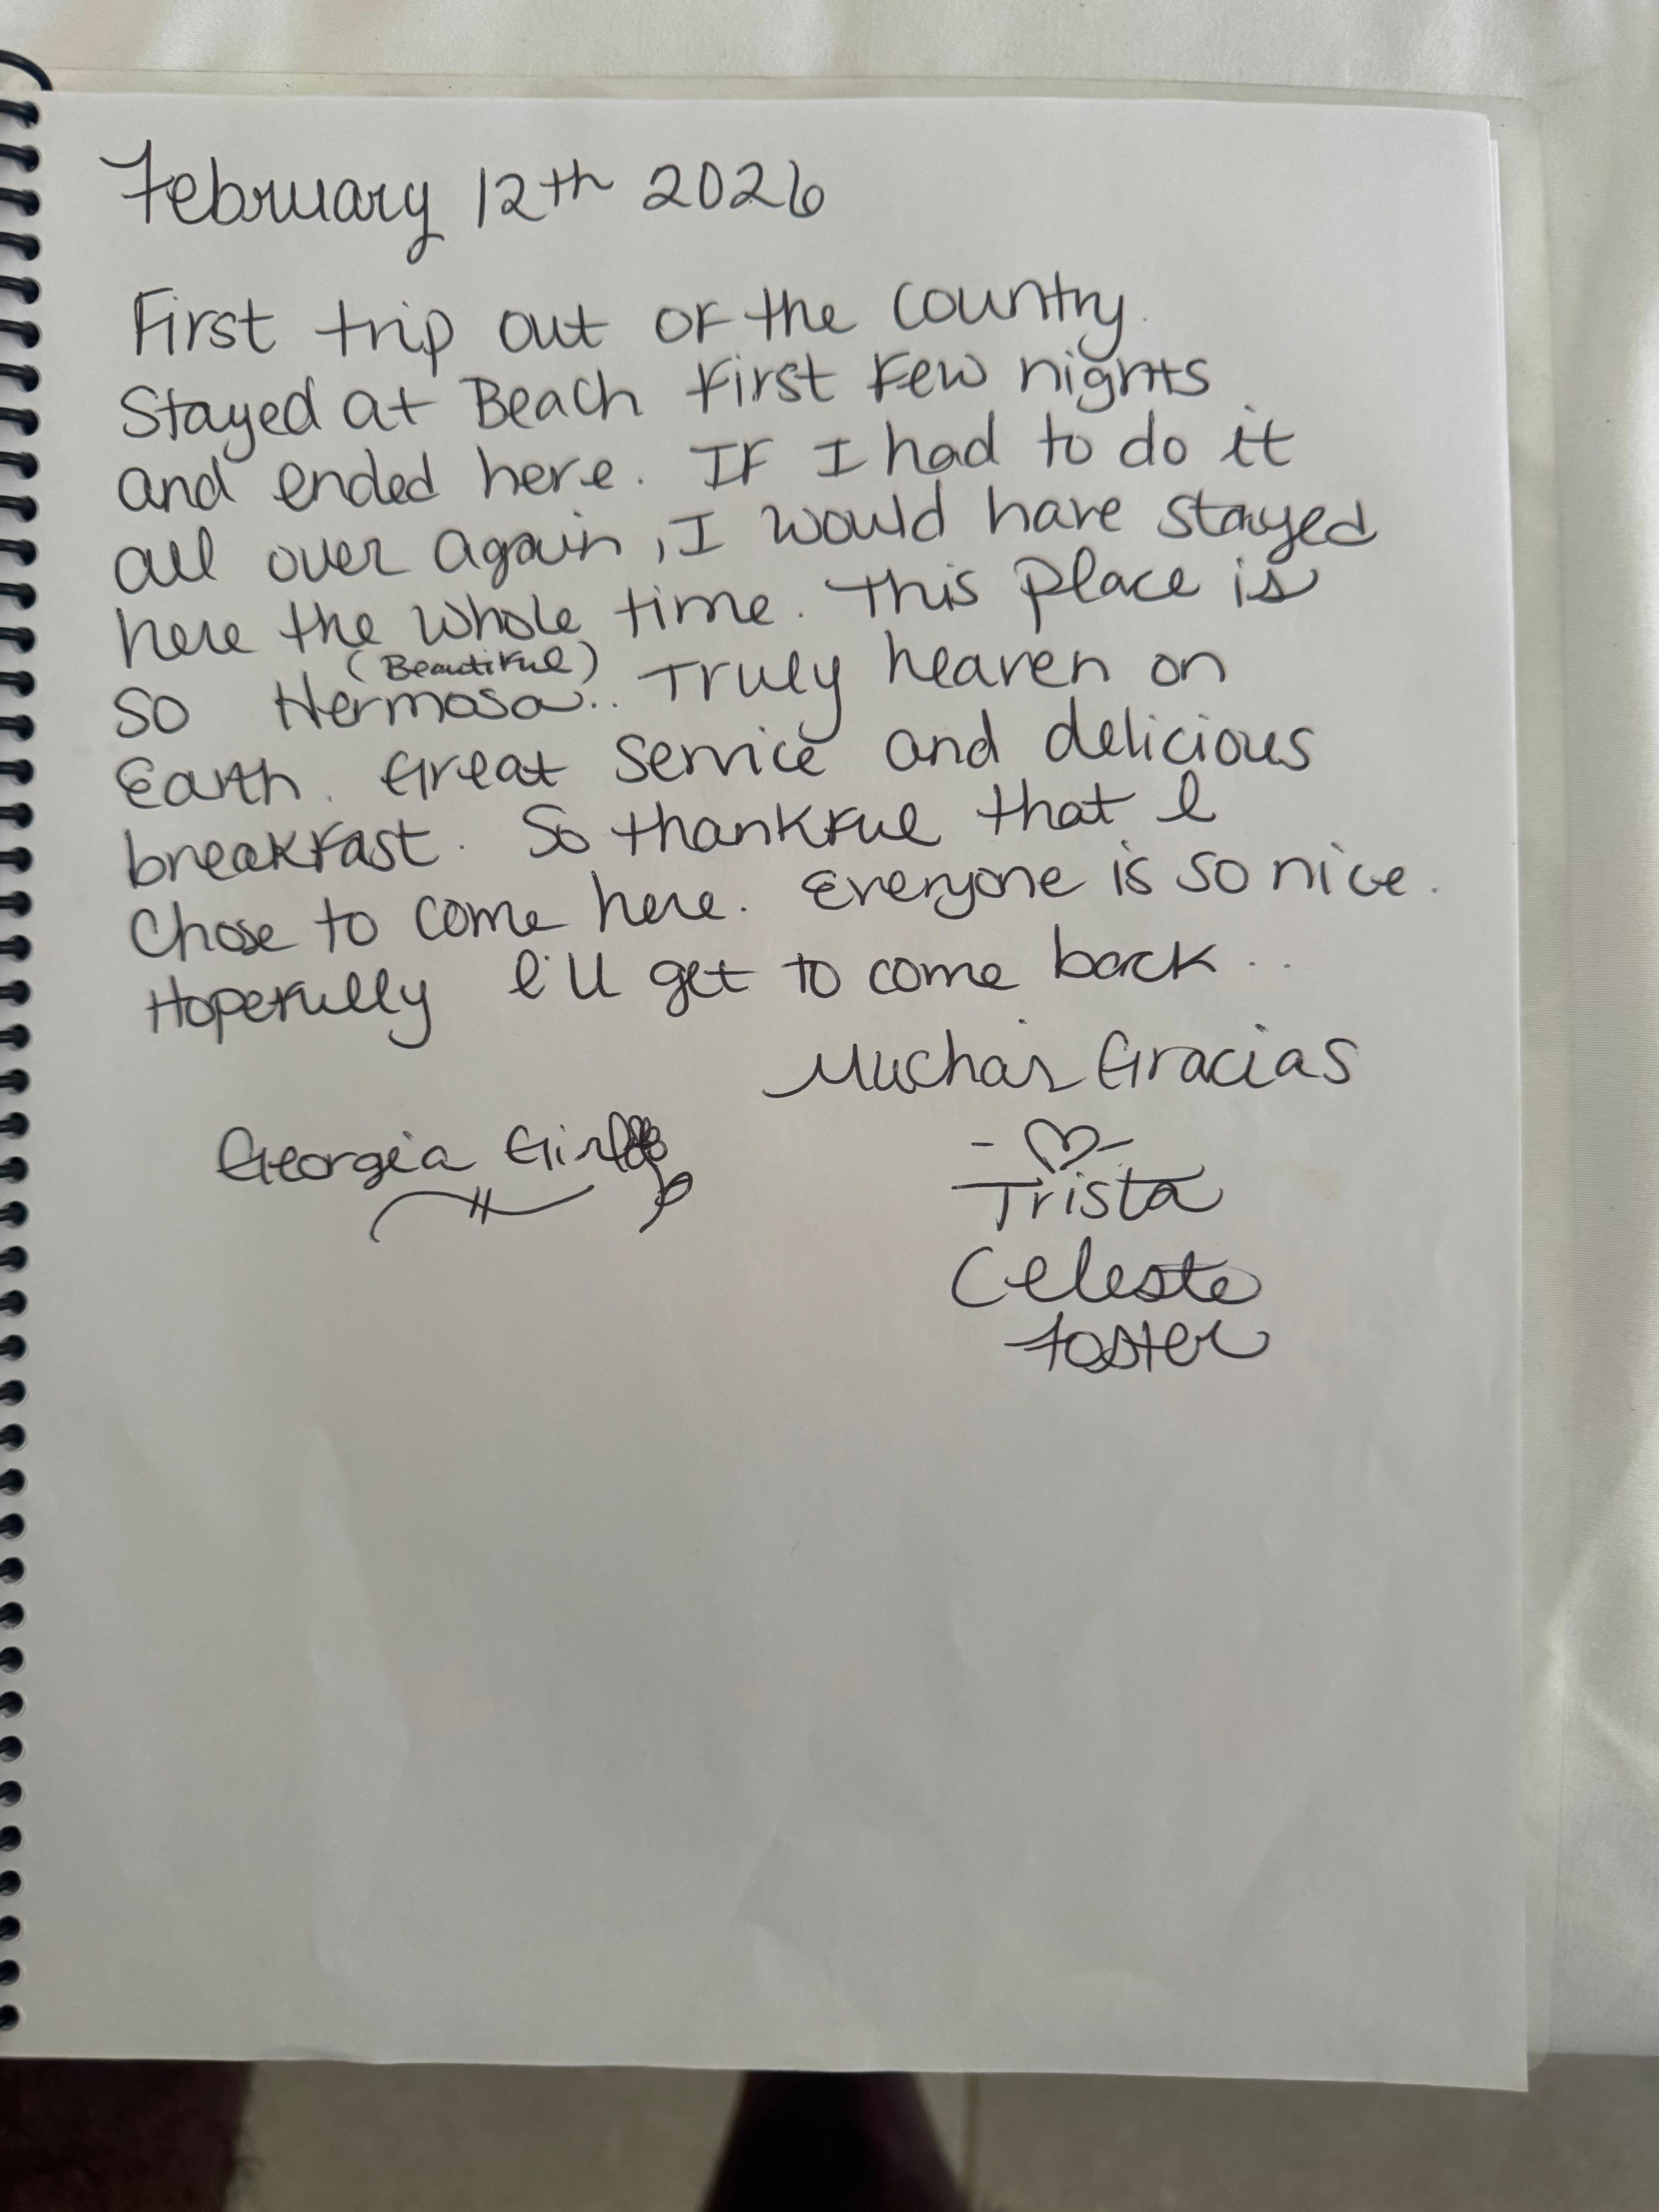 February 12th 2026
First trip out of the country.
Stayed at Beach first few nights
and ended here. If I had to do it
all over again, I would have stayed
here the whole time. This place is
(Beautiful)
so Hermosa.. Truly heaven on
Earth. Great service and delicious
breakfast. So thankful that I
chose to come here. Everyone is so nice.
Hopefully I'll get to come back..
Muchas Gracias
Georgia Girl
Trista
Celeste
Foster